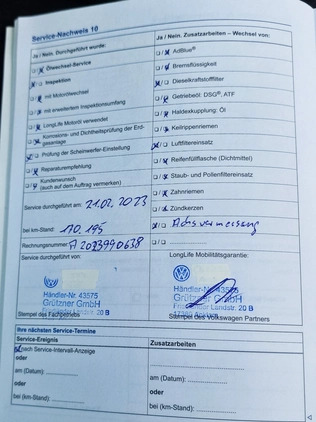 Service-Nachweis 10
Ja / Nein. Durchgeführt wurde:
Ölwechsel-Service
Inspektion
mit Motorölwechsel
mit erweitertem Inspektionsumfang
LongLife Motoröl verwendet
Korrosions- und Dichtheitsprüfung der Erd-
gasanlage
Prüfung der Scheinwerfer-Einstellung
Reparaturempfehlung
Kundenwunsch
(auch auf dem Auftrag vermerken)
Service durchgeführt am: 21.02.2023
bei km-Stand: 170.195
Rechnungsnummer: A 2023990638
Service durchgeführt von:
Händler-Nr. 43575
Grützner GmbH
Stempel des Fachbetriebs
Ja / Nein. Zusatzarbeiten – Wechsel von:
AdBlue®
Bremsflüssigkeit
Dieselkraftstofffilter
Getriebeöl: DSG®, ATF
Haldexkupplung: Öl
Keilrippenriemen
Luftfiltereinsatz
Reifenfüllflasche (Dichtmittel)
Staub- und Pollenfiltereinsatz
Zahnriemen
Zündkerzen
Achsvermessung
LongLife Mobilitätsgarantie:
Händler-Nr. 43575
Grützner GmbH
20 B
Stempel des Volkswagen Partners
Ihre nächsten Service-Termine
Service-Ereignis
nach Service-Intervall-Anzeige
oder
am (Datum):
oder
bei (km-Stand):
Zusatzarbeiten
am (Datum):
oder
bei (km-Stand):